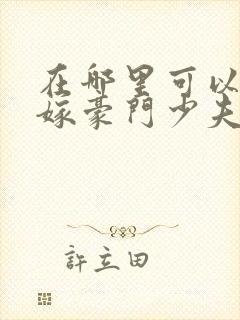 在哪里可以
嫁豪門少夫
許立田